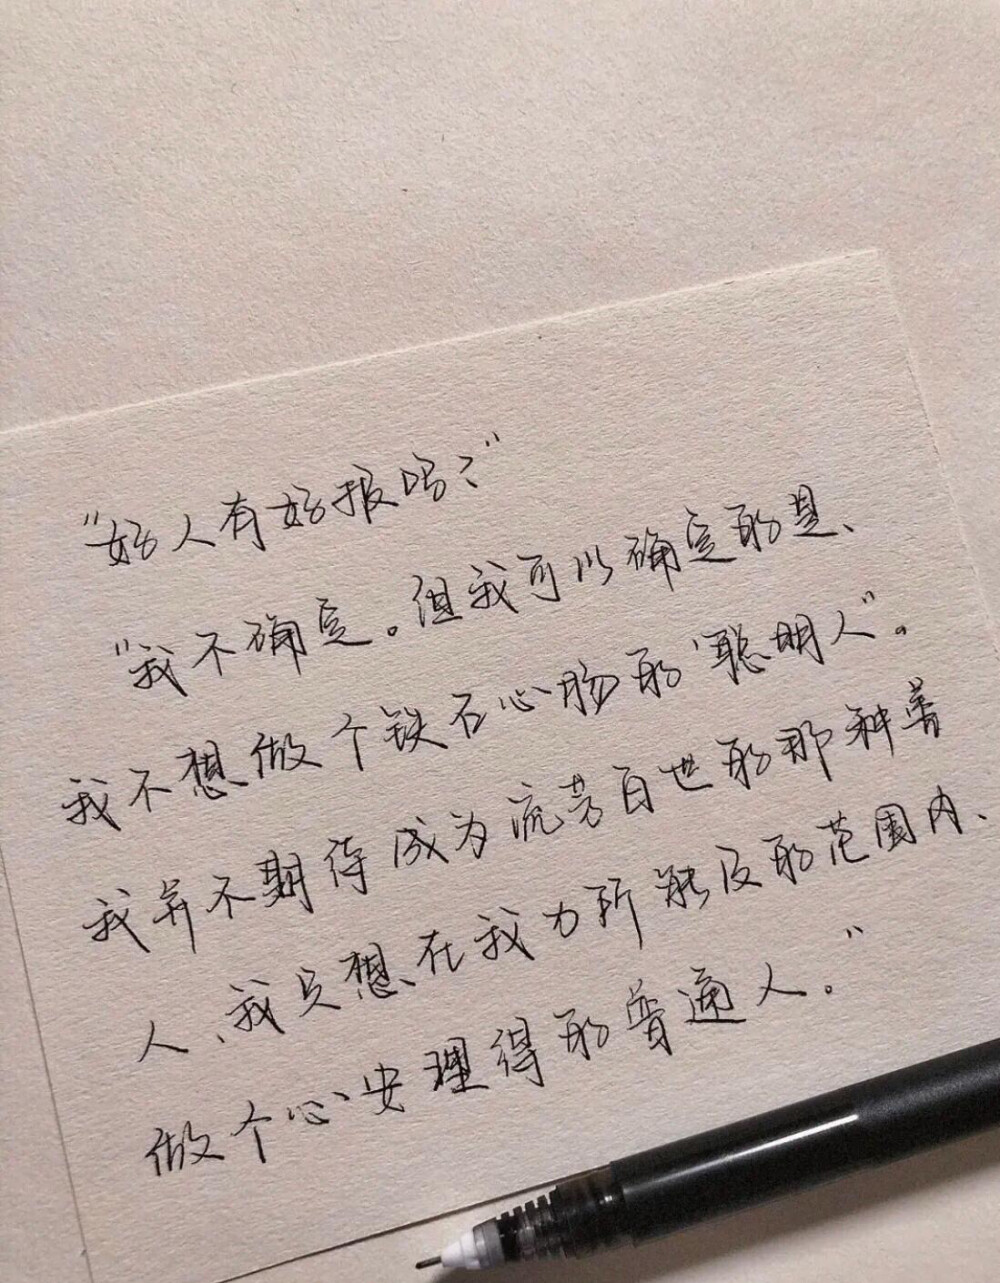 “好人有好报吗？”
“我不确定。但我可以确定的是、
我不想做个铁石心肠的“聪明人”。
我并不期待成为流芳百世的那种善
人、我只想在我力所能及的范围内、
做个心安理得的普通人。”